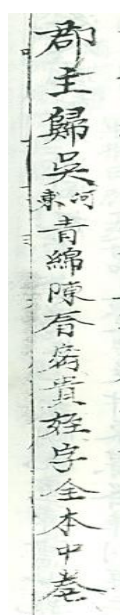 郡主歸吳河東青綿陳貴姪字全本中卷